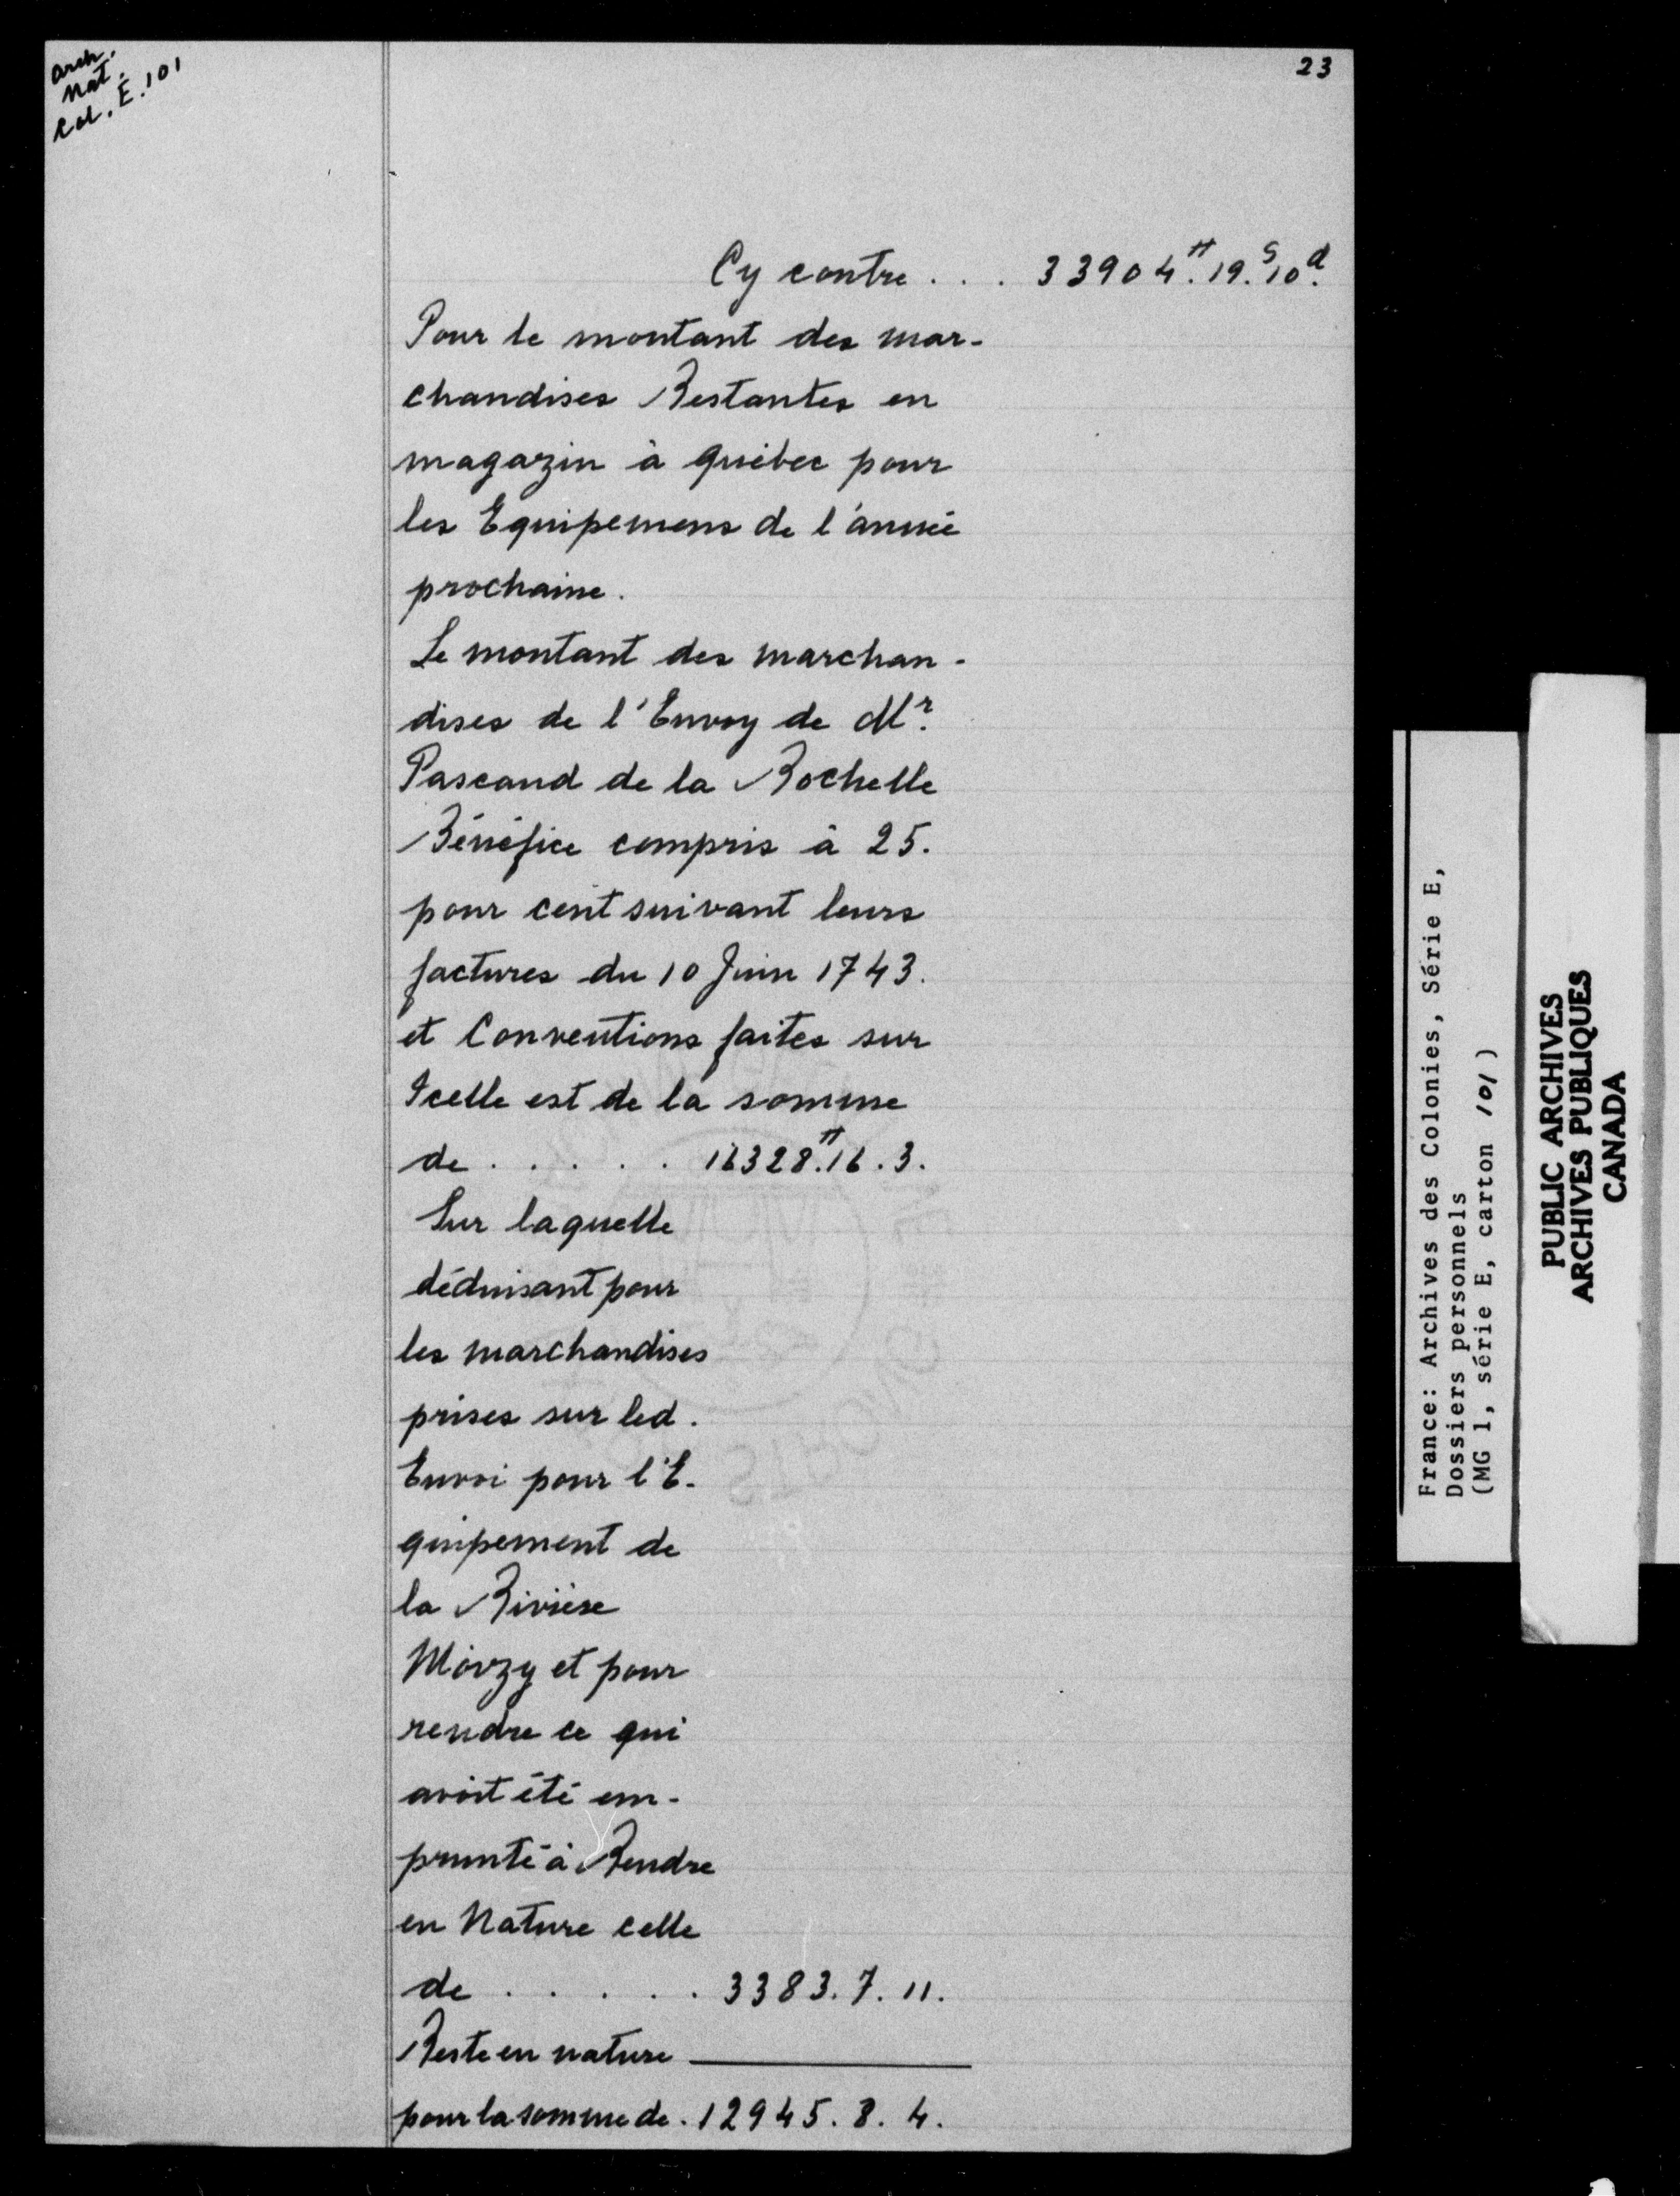 arch.
nat.
Col. E. 101
23
Cy contre . . . 33904.ᴴ 19.ˢ 10.ᵈ
Pour le montant des mar-
chandises Restantes en
magazin à québec pour
les Equipemens de l'année
prochaine.
Le montant des marchan-
dises de l'Envoy de Mʳ.
Pascaud de la Rochelle
Bénéfice compris à 25.
pour cent suivant leurs
factures du 10 Juin 1743.
et Conventions faites sur
Icelle est de la somme
de . . . . . 16328.ᴴ 16. 3.
Sur laquelle
déduisant pour
les marchandises
prises sur led.
Envoi pour l'E-
quipement de
la Rivière
Moizy et pour
rendre ce qui
avoit été em-
prunté à Rendre
en Nature celle
de . . . . . 3383. 7. 11.
Reste en nature
pour la somme de . 12945. 8. 4.
France: Archives des Colonies, Série E,
Dossiers personnels
(MG 1, série E, carton 101)
PUBLIC ARCHIVES
ARCHIVES PUBLIQUES
CANADA